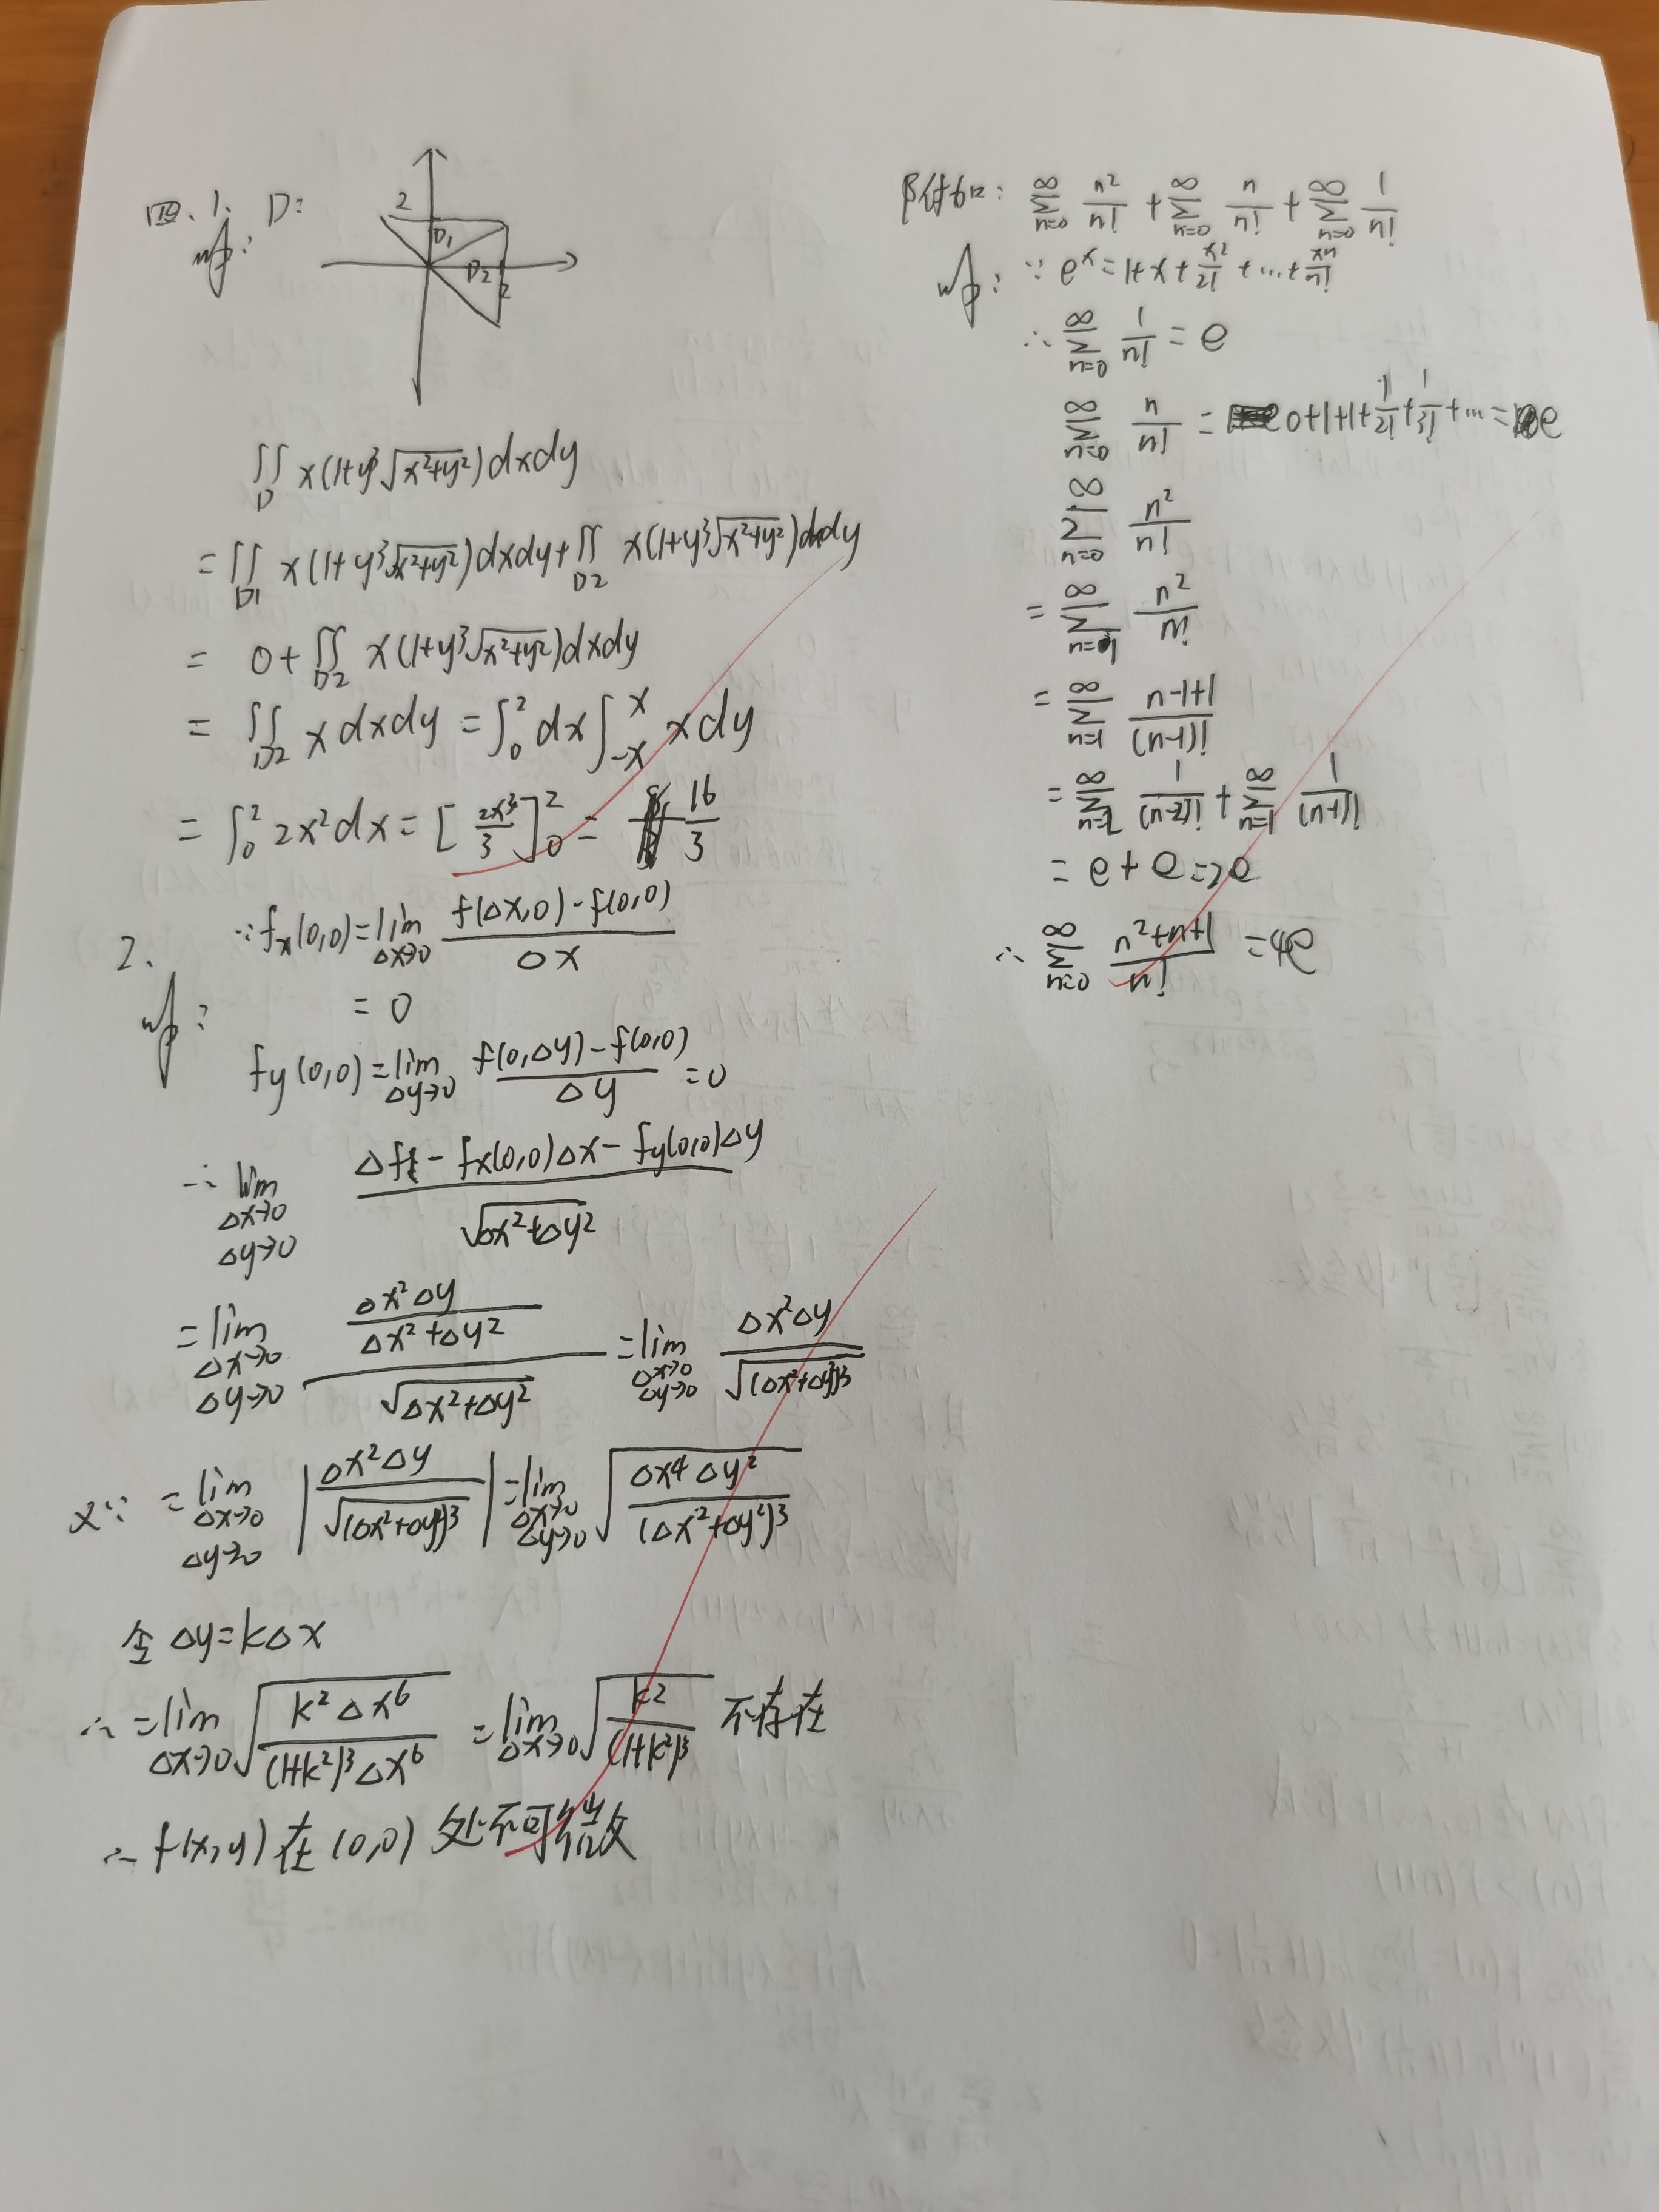 四、1. D:
解:
2
D1
D2
2
∬_D x(1+y³√(x²+y²))dxdy
=∬_D1 x(1+y³√(x²+y²))dxdy+∬_D2 x(1+y³√(x²+y²))dxdy
= 0+∬_D2 x(1+y³√(x²+y²))dxdy
= ∬_D2 x dxdy =∫₀² dx∫₋ₓˣ x dy
= ∫₀² 2x²dx = [2x³/3]₀² = 16/3
2. ∵fx(0,0)=lim_{Δx→0} (f(Δx,0)-f(0,0))/Δx
解: = 0
fy(0,0)=lim_{Δy→0} (f(0,Δy)-f(0,0))/Δy =0
∵ lim_{Δx→0 Δy→0} (Δf - fx(0,0)Δx - fy(0,0)Δy)/√(Δx²+Δy²)
=lim_{Δx→0 Δy→0} (Δx²Δy/(Δx²+Δy²))/√(Δx²+Δy²) =lim_{Δx→0 Δy→0} Δx²Δy/√((Δx²+Δy²)³)
又∵ =lim_{Δx→0 Δy→0} |Δx²Δy/√((Δx²+Δy²)³)|=lim_{Δx→0 Δy→0} √(Δx⁴Δy²/(Δx²+Δy²)³)
令 Δy=kΔx
∴ =lim_{Δx→0} √(k²Δx⁶/((1+k²)³Δx⁶)) =lim_{Δx→0} √(k²/(1+k²)³) 不存在
∴ f(x,y) 在 (0,0) 处不可微
附加: ∑_{n=0}^∞ n²/n! + ∑_{n=0}^∞ n/n! + ∑_{n=0}^∞ 1/n!
解: ∵ eˣ=1+x+x²/2!+…+xⁿ/n!
∴ ∑_{n=0}^∞ 1/n! = e
∑_{n=0}^∞ n/n! = 0+1+1+1/2!+1/3!+… = e
∑_{n=0}^∞ n²/n!
= ∑_{n=1}^∞ n²/n!
= ∑_{n=1}^∞ (n-1+1)/(n-1)!
= ∑_{n=2}^∞ 1/(n-2)! + ∑_{n=1}^∞ 1/(n-1)!
= e+e=2e
∴ ∑_{n=0}^∞ (n²+n+1)/n! =4e